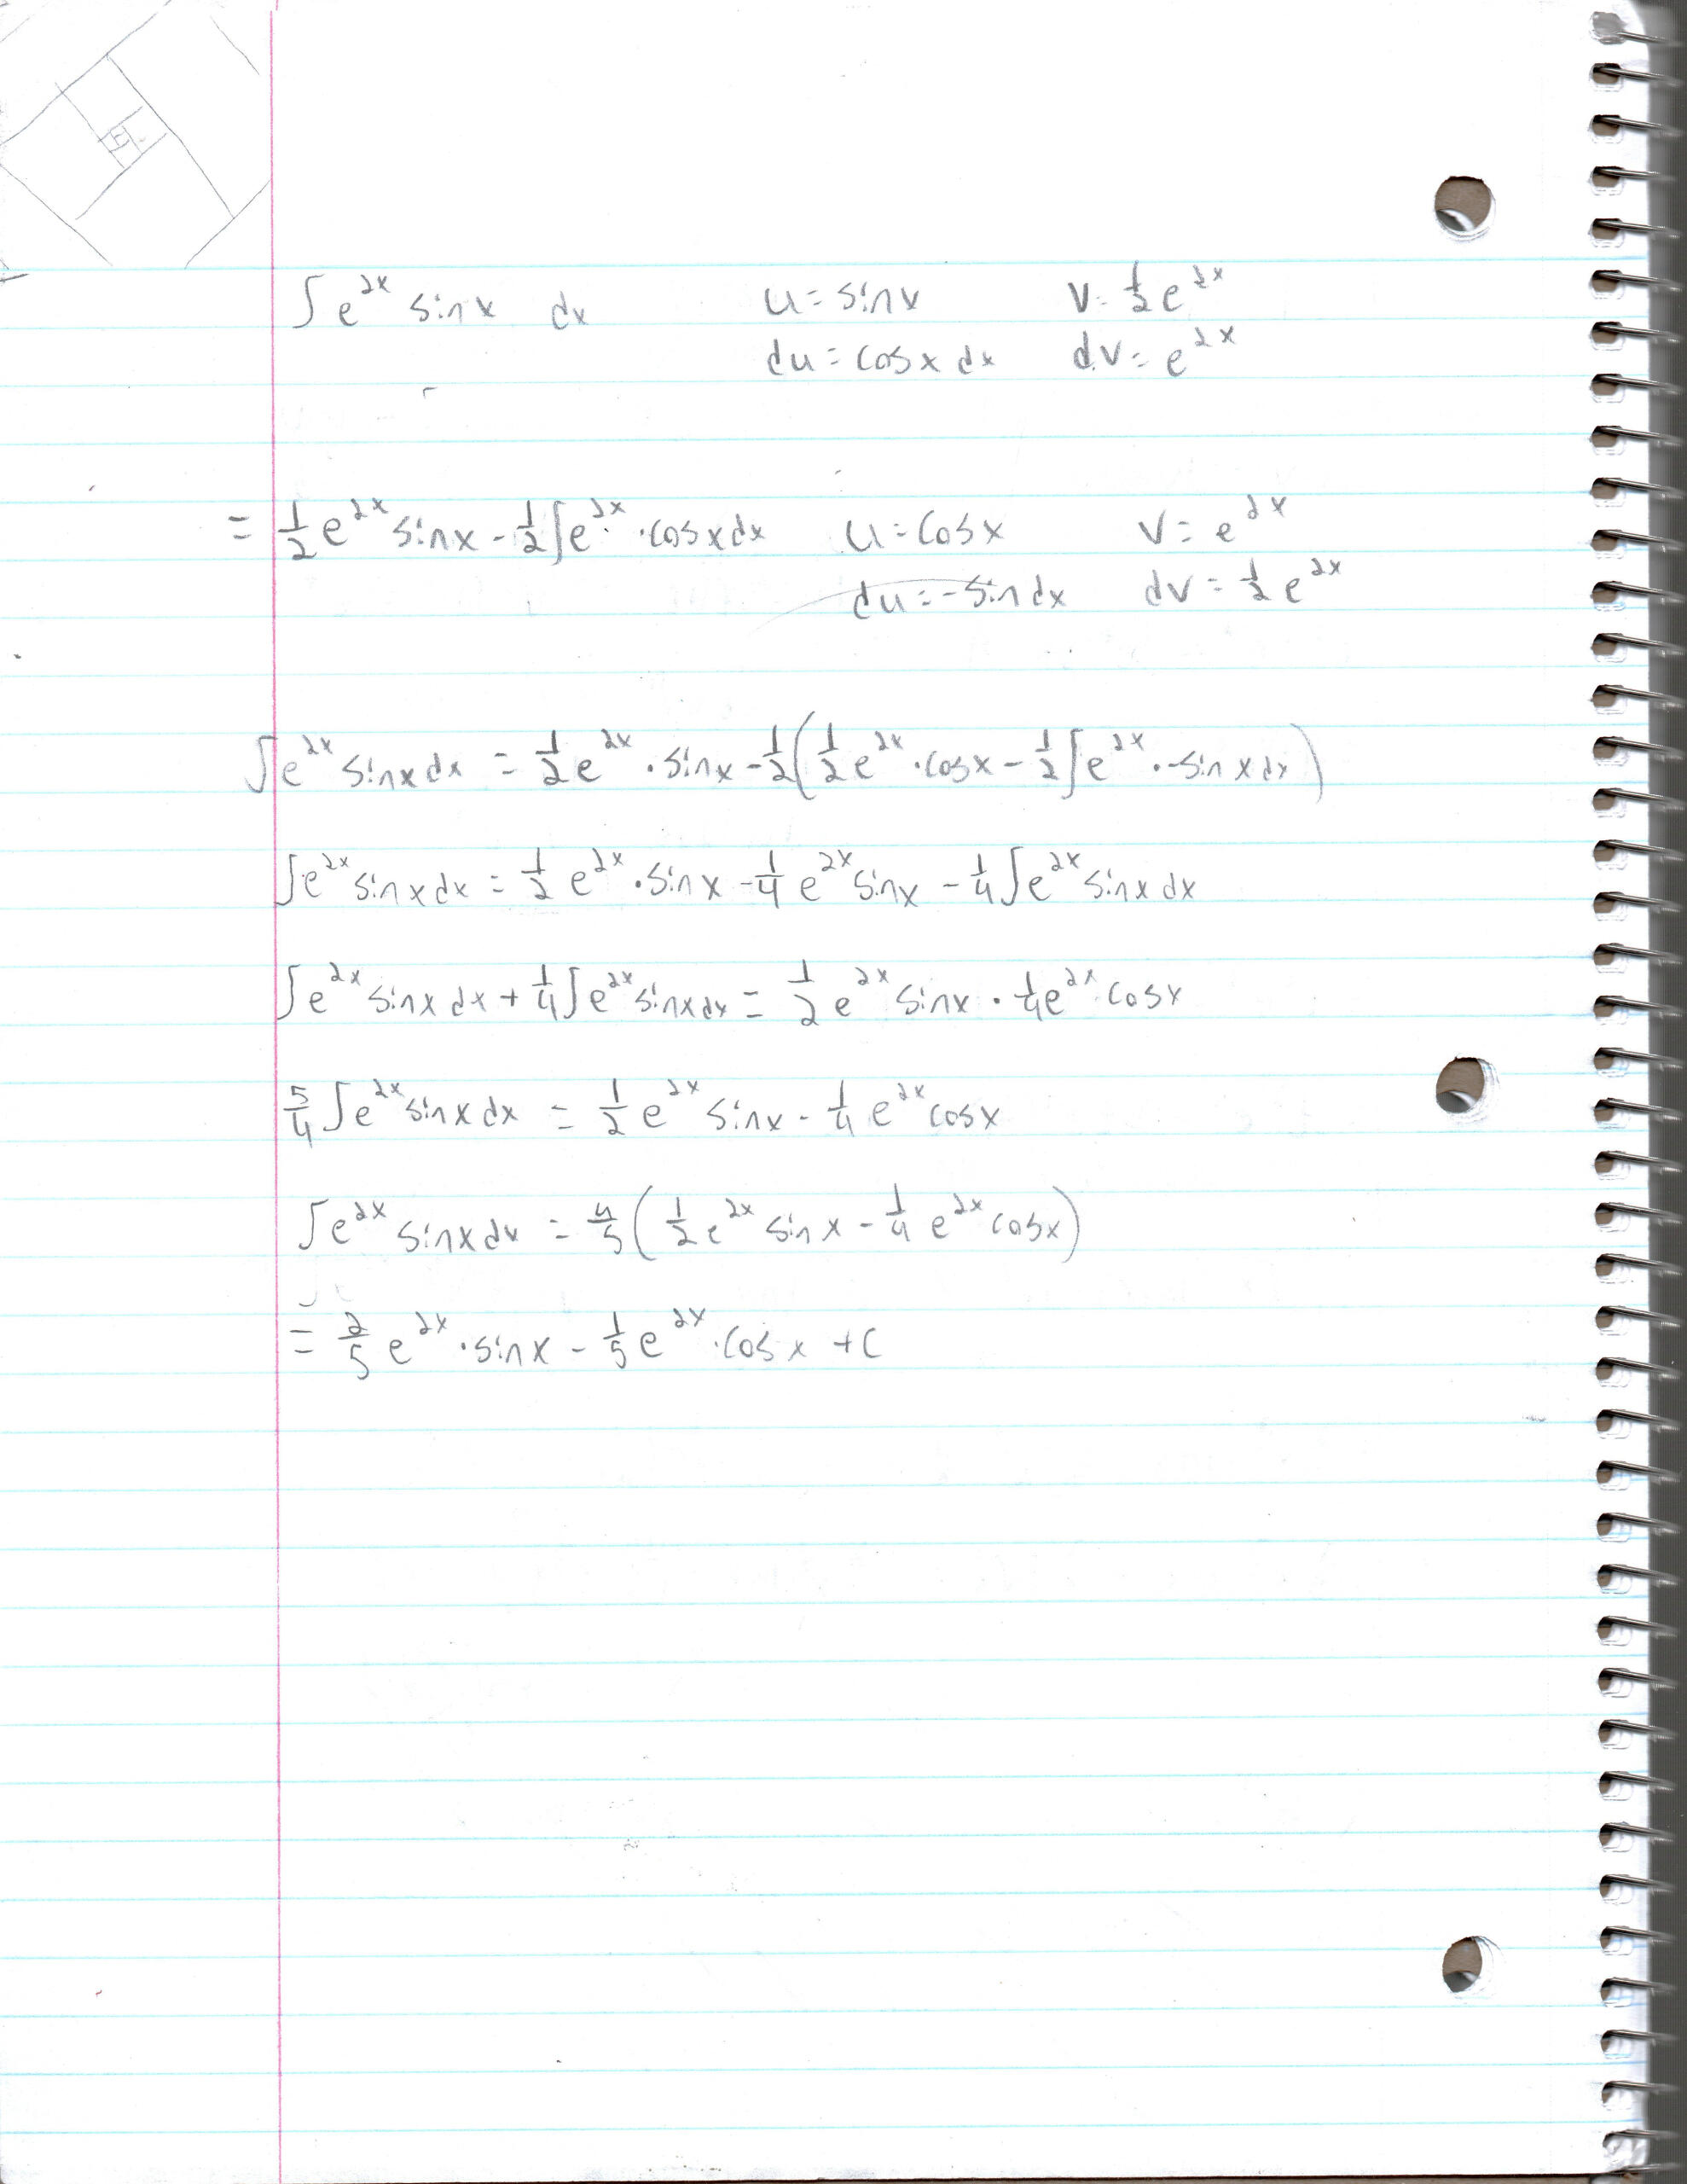 ∫ e^{2x} sinx dx u = sinx v = 1/2 e^{2x}
du = cosx dx dv = e^{2x}
= 1/2 e^{2x} sinx - 1/2 ∫ e^{2x} · cosxdx u = cosx v = e^{2x}
du = -sin dx dv = 1/2 e^{2x}
∫ e^{2x} sinx dx = 1/2 e^{2x} · sinx - 1/2 ( 1/2 e^{2x} · cosx - 1/2 ∫ e^{2x} · -sinx dx )
∫ e^{2x} sinx dx = 1/2 e^{2x} · sinx - 1/4 e^{2x} sinx - 1/4 ∫ e^{2x} sinx dx
∫ e^{2x} sinx dx + 1/4 ∫ e^{2x} sinx dx = 1/2 e^{2x} sinx · 1/4 e^{2x} cosx
5/4 ∫ e^{2x} sinx dx = 1/2 e^{2x} sinx - 1/4 e^{2x} cosx
∫ e^{2x} sinx dx = 4/5 ( 1/2 e^{2x} sinx - 1/4 e^{2x} cosx )
= 2/5 e^{2x} · sinx - 1/5 e^{2x} · cosx + C